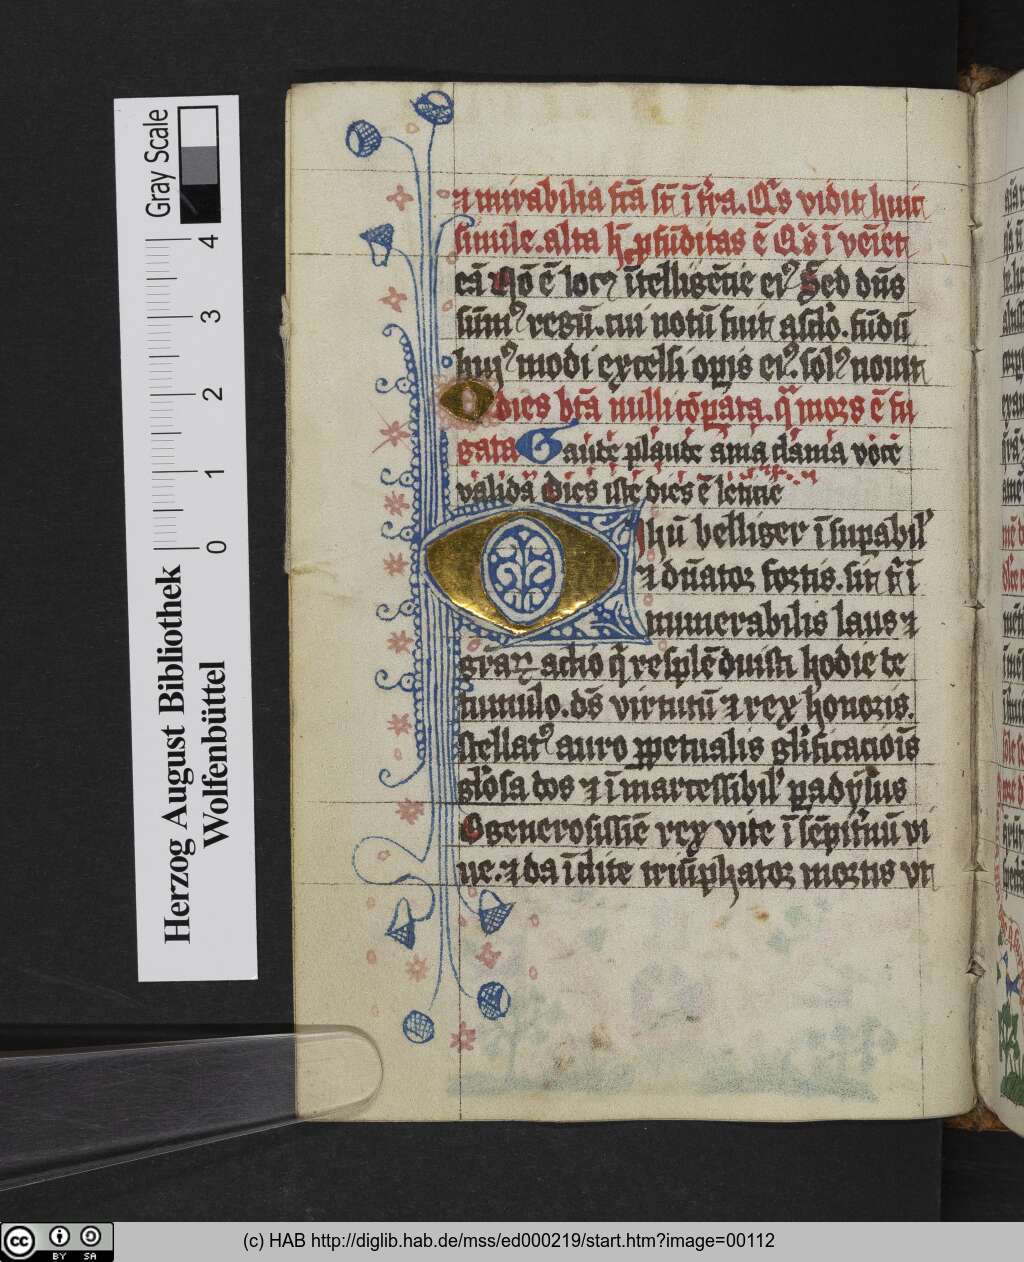 Gray Scale
4
3
2
1
0
Herzog August Bibliothek
Wolfenbüttel
⁊ mirabilia fc̄a ſt̄ ī t̄ra. Qͥs vidit huic
ſimile. alta h̄ ꝓfūditas ē Qͥs īveīet
eā Nō ē locꝰ ītelligētie eiꝰ Sed dn̄s
ſūmꝰ regū. cui notū fuit
huiꝰmodi excelſi opis eiꝰ. ſolꝰ nouit
O dies bt̄a nulli cōꝑata. qͣ mors ē fu
gata Gaude plaude ama clama voce
valida Dies iſte dies ē leticie
O ihū belliger īſuꝑabil'
⁊ dn̄ator fortis. ſit t' ī
numerabilis laus ⁊
gr̄aꝝ actio qͥ reſplēduiſti hodie de
tumulo. dn̄s virtutū ⁊ rex honoris.
ſtellatꝰ auro ꝑpetualis glīficatiōis
gl'oſa dos ⁊ īmarceſſibil' ꝑadyſus
O generoſiſſīe rex vite ī ſēpit'nū vi
ue. ⁊ da īclite triūphator mortis vt
(c) HAB http://diglib.hab.de/mss/ed000219/start.htm?image=00112
cc BY SA